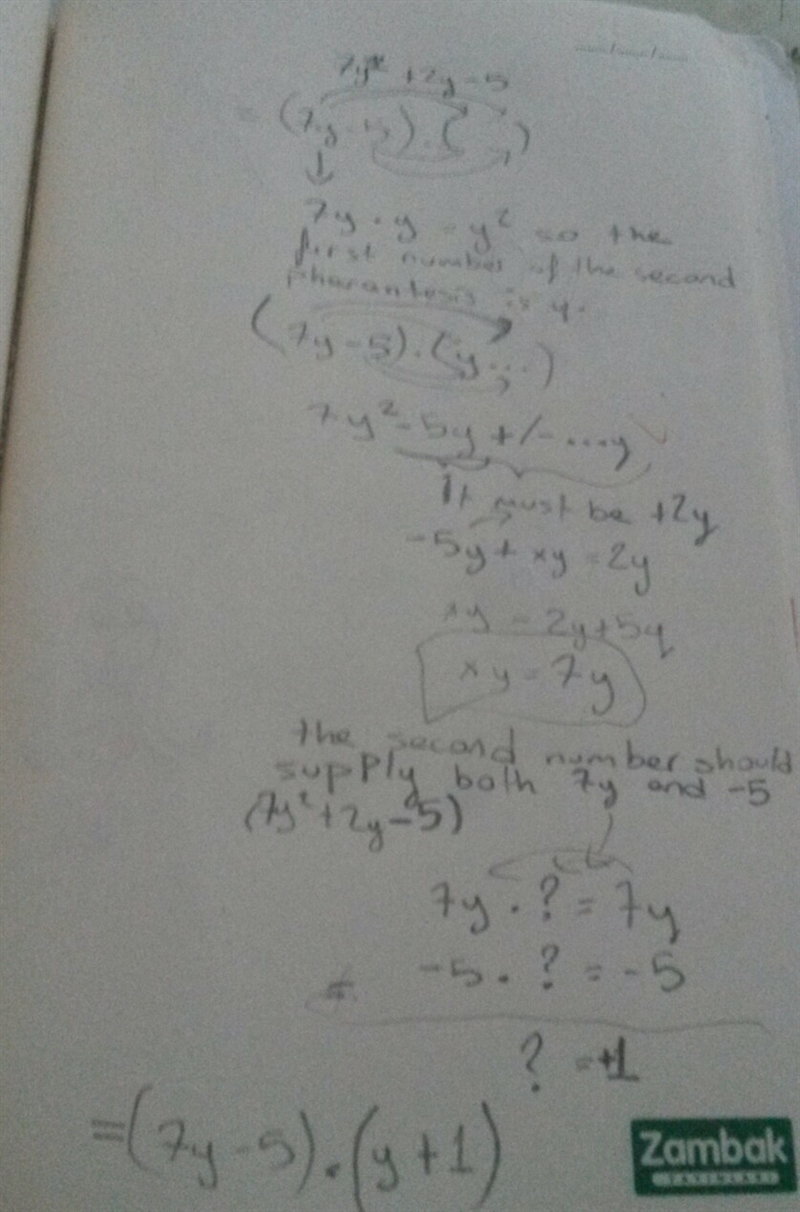 7y² + 2y - 5
= (7y - 5) . ( )
7y . y = y² so the
first number of the second
pharantesis is y.
(7y - 5) . (y ...)
7y² - 5y +/- ....y
It must be +2y
-5y + xy = 2y
xy = 2y + 5y
xy = 7y
the second number should
supply both 7y and -5
(7y² + 2y - 5)
7y . ? = 7y
-5 . ? = -5
? = +1
= (7y - 5) . (y + 1)
Zambak
YAYINLARI